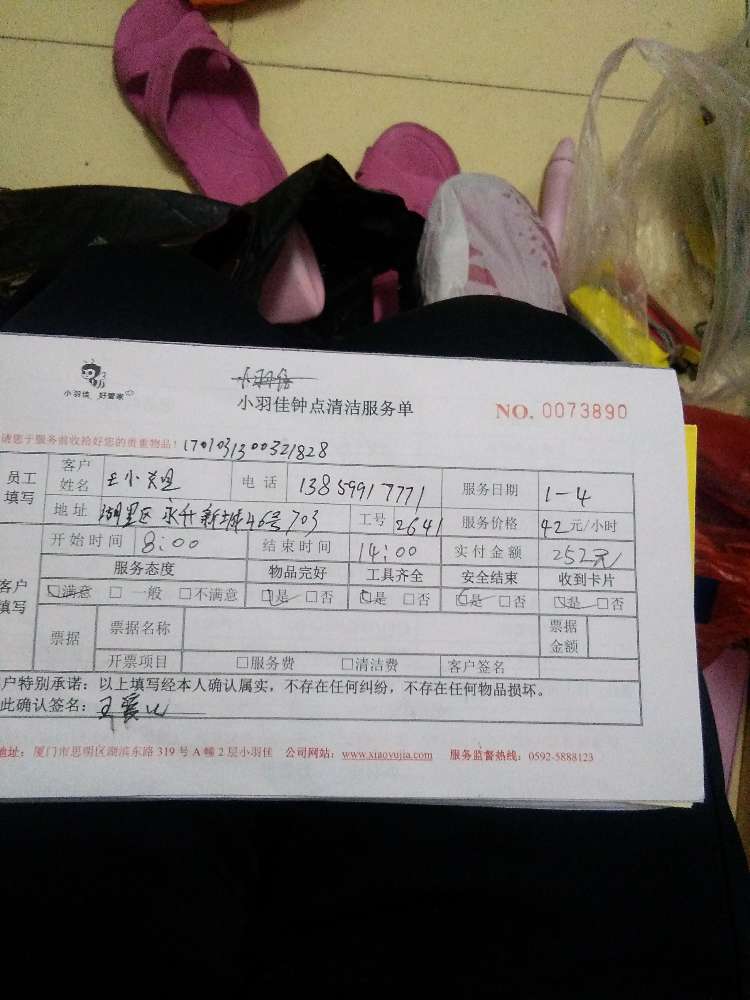 小羽佳 好管家
小羽佳
小羽佳钟点清洁服务单
NO. 0073890
请您于服务前收拾好您的贵重物品！1701031300321828
员工填写 客户姓名 王小 电话 13859917771 服务日期 1-4
地址 湖里区永升新城46号703 工号 2641 服务价格 42元/小时
开始时间 8:00 结束时间 14:00 实付金额 252元
客户填写 服务态度 物品完好 工具齐全 安全结束 收到卡片
☑满意 □一般 □不满意 ☑是 □否 ☑是 □否 ☑是 □否 ☑是 □否
票据 票据名称 票据金额
开票项目 □服务费 □清洁费 客户签名
户特别承诺：以上填写经本人确认属实，不存在任何纠纷，不存在任何物品损坏。
此确认签名：王爱
地址：厦门市思明区湖滨东路319号A幢2层小羽佳 公司网站：www.xiaoyujia.com 服务监督热线：0592-5888123